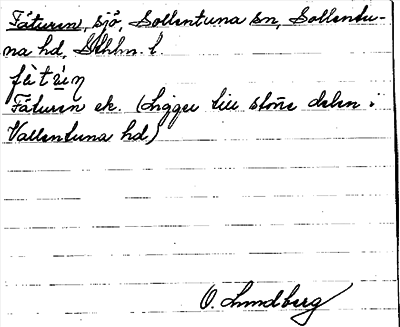 Fåturen, sjö, Sollentuna sn, Sollentu-
na hd, Sthlm. l.
få`tùrεn
Fåturen ek. (Ligger till större delen i
Vallentuna hd)
O. Lundberg